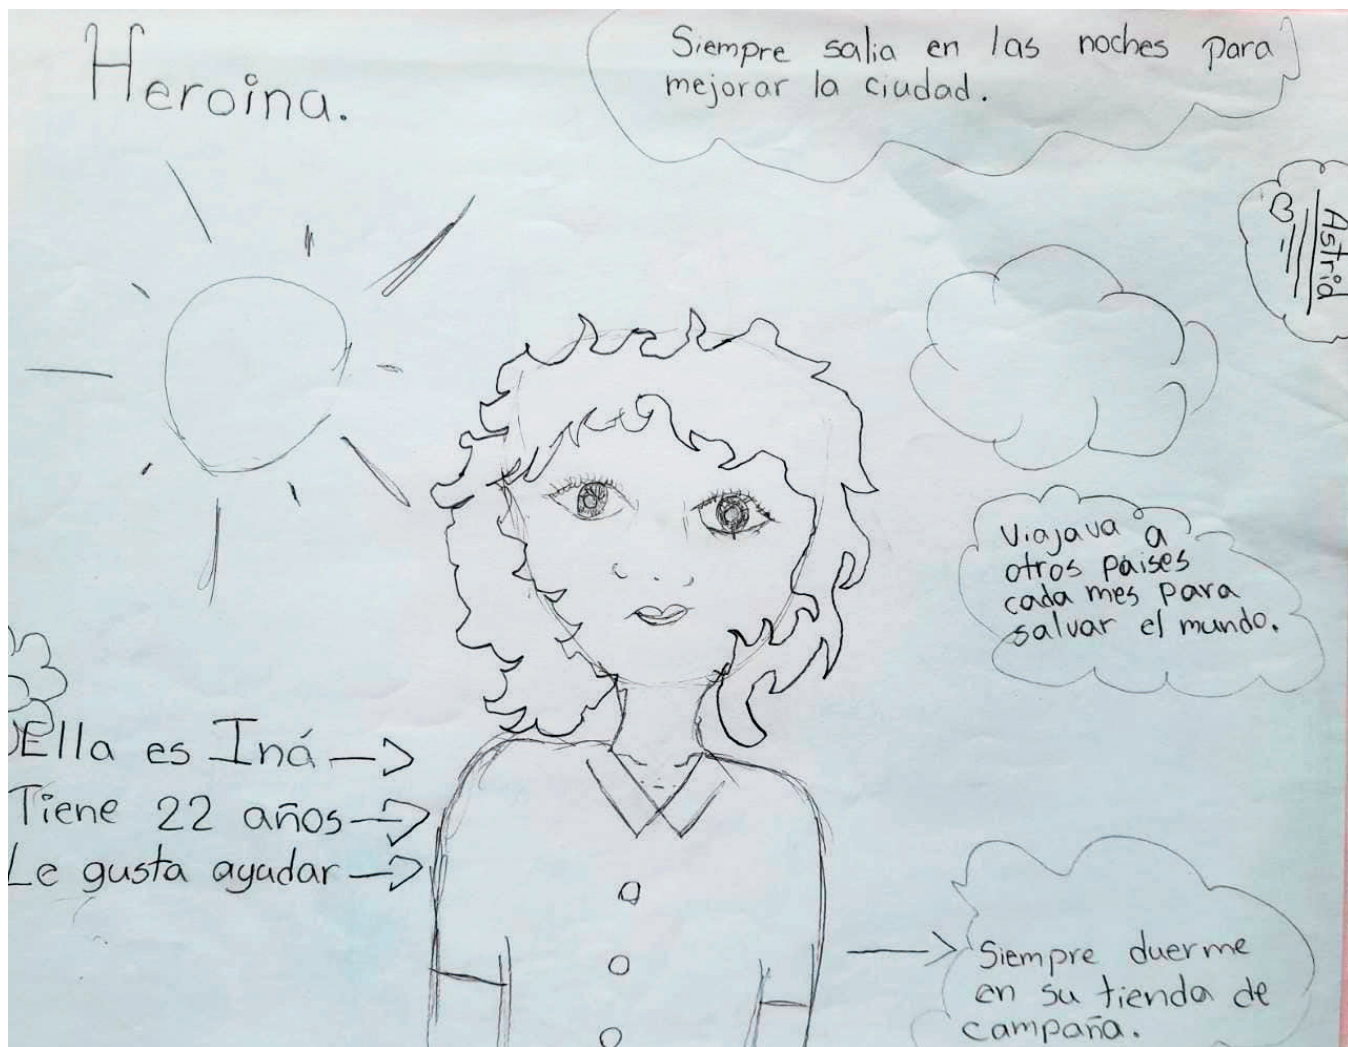 Heroina.
Siempre salia en las noches para
mejorar la ciudad.
Astrid
Viajava a
otros paises
cada mes para
salvar el mundo.
Ella es Iná
Tiene 22 años
Le gusta ayudar
Siempre duerme
en su tienda de
campaña.